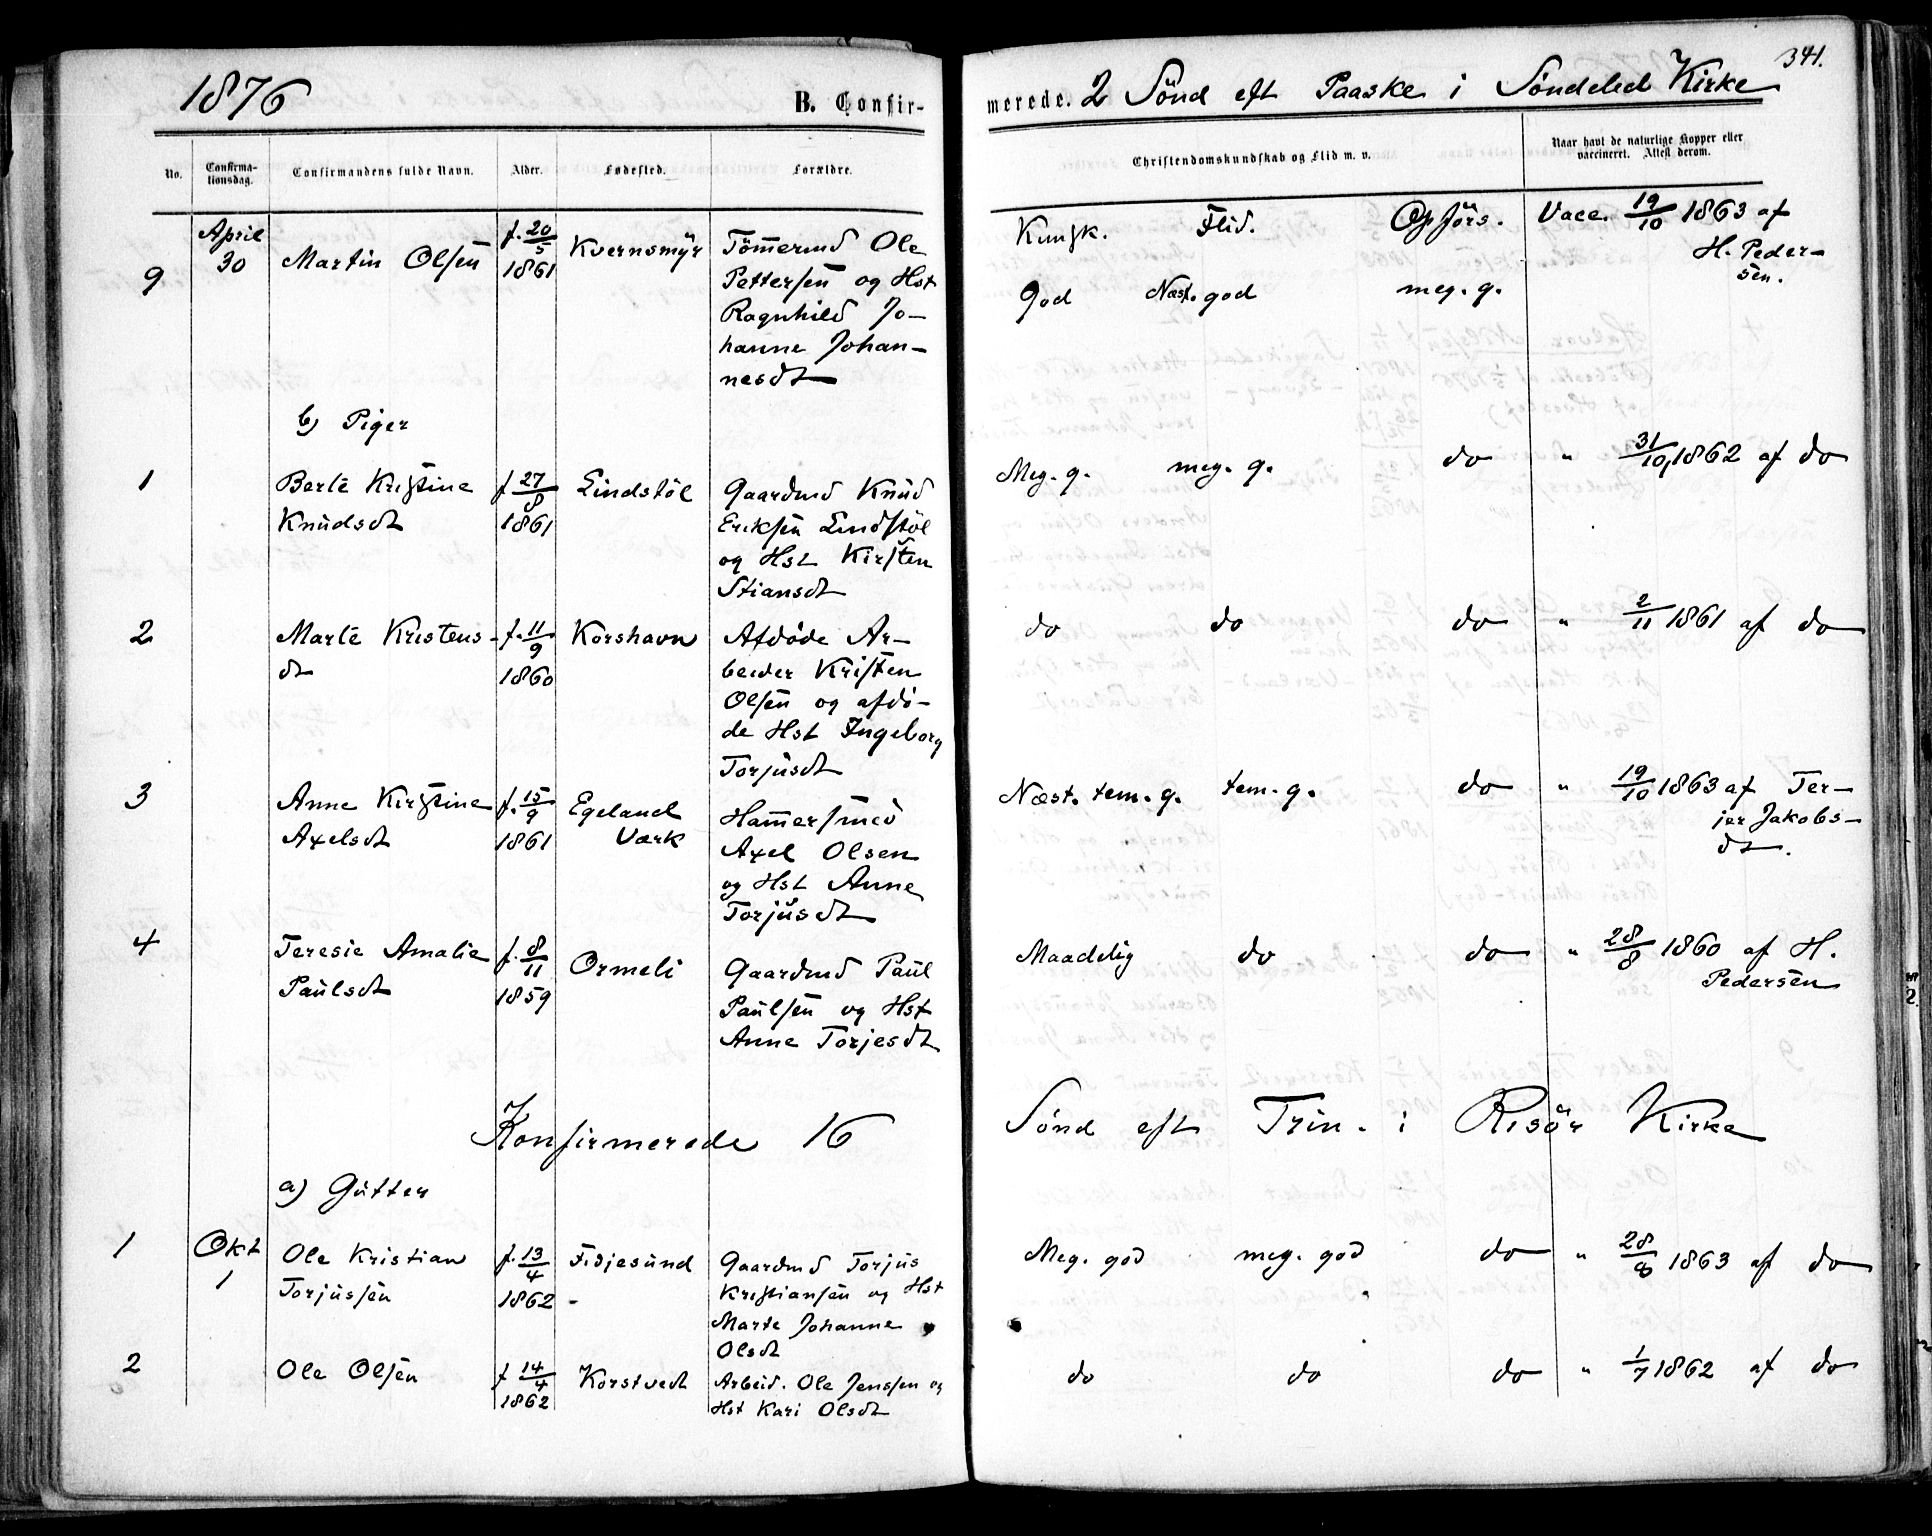 341.
1876 B. Confirmerede. 2 Sönd eft Paaske i Söndeled Kirke
No. Confirmationsdag. Confirmandens fulde Navn. Alder. Fødested. Forældre. Christendomskundskab og Flid m. v. Naar havt de naturlige Kopper eller vaccineret. Attest derom.
Kunsk. Flid. Opförs.
9 April 30 Martin Olsen f. 20/5 1861 Kvernsmyr Tömermd Ole
Pettersen og Hst
Ragnhild Jo-
hanne Johan-
nesdt
God Næst. god meg. g. Vacc. 19/10 1863 af
H. Peder-
sen.
b) Piger
1 Berte Kristine
Knudsdt
f 27/8 1861 Lindstöl Gaardmd Knud
Eriksen Lindstöl
og Hst Kirsten
Stiansdt
Meg. g. meg. g. do " 31/10 1862 af do
2 Marte Kristens-
dt
f. 11/9 1860 Korshavn Afdøde Ar-
beider Kristen
Olsen og afdö-
de Hst Ingeborg
Torjusdt
do do do " 2/11 1861 af do
3 Anne Kirstine
Axelsdt
f. 15/9 1861 Egeland
Værk
Hammersmed
Axel Olsen
og Hst Anne
Torjusdt
Næst. tem. g. tem. g. do " 19/10 1863 af Ter-
jer Jakobs-
dt.
4 Teresie Amalie
Paulsdt
f. 8/11 1859 Ormeli Gaardmd Paul
Paulsen og Hst
Anne Torjesdt
Maadelig do do " 28/8 1860 af H.
Pedersen
Konfirmerede 16 Sönd eft Trin. i Risör Kirke
a) Gutter
1 Okt 1 Ole Kristian
Torjussen
f. 13/4 1862 Fidjesund Gaardmd Torjus
Kristiansen og Hst
Marte Johanne
Olsdt
Meg. god meg. god do " 28/8 1863 af do
2 Ole Olsen f 14/4 1862 Korstvedt Arbeid. Ole Jenssen og
Hst Kari Olsdt
do do do " 1/7 1862 af do